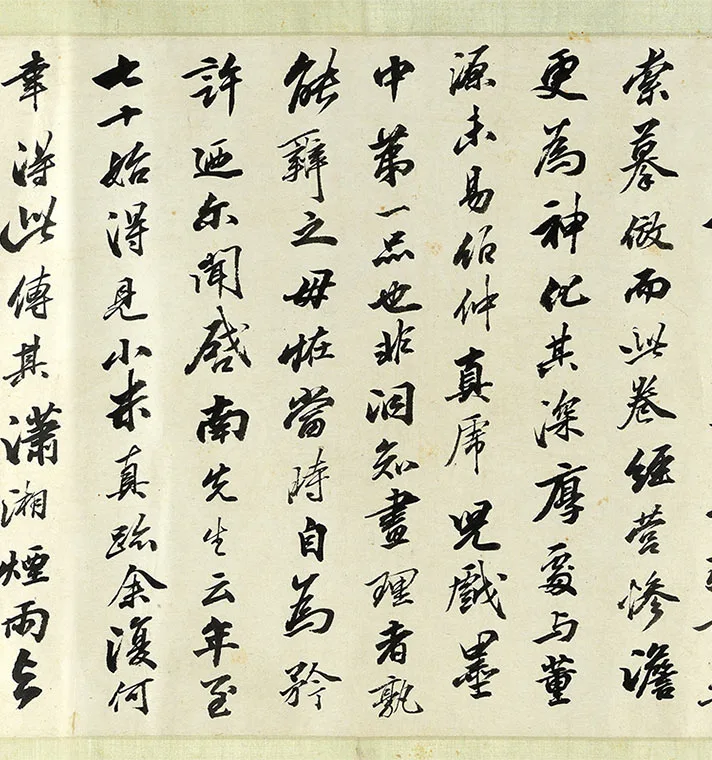 索摹倣而此卷經營慘澹
更為神化其深厚處與董
源未易伯仲真虎兒戲墨
中第一品也非洞知畫理者孰
能辭之毋怪當時自為矜
許迺爾聞啓南先生云年至
七十始得見小米真跡余復何
幸得此傳其瀟湘煙雨